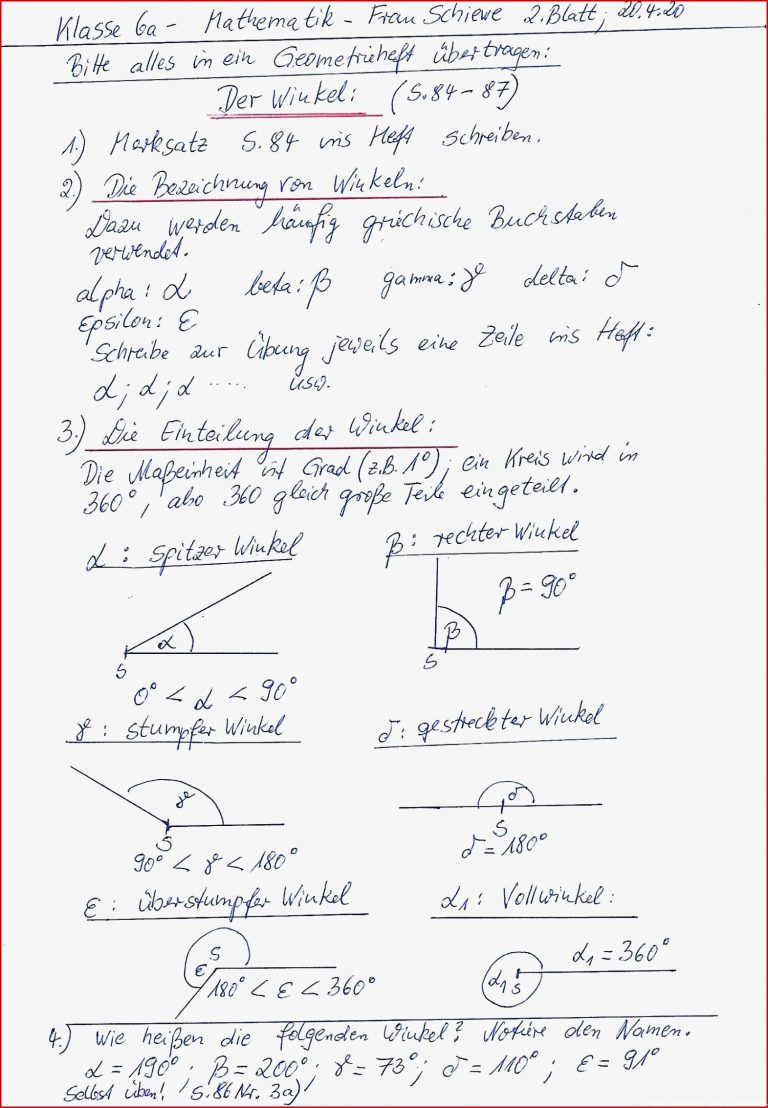 Klasse 6a - Mathematik - Frau Schiewe 2. Blatt; 20.4.20
Bitte alles in ein Geometrieheft übertragen:
Der Winkel: (S. 84 - 87)
1.) Merksatz S. 84 ins Heft schreiben.
2.) Die Bezeichnung von Winkeln:
Dazu werden häufig griechische Buchstaben
verwendet.
alpha: α beta: β gamma: γ delta: δ
Epsilon: ε
Schreibe zur Übung jeweils eine Zeile ins Heft:
α; α; α ..... usw.
3.) Die Einteilung der Winkel:
Die Maßeinheit ist Grad (z.B. 1°); ein Kreis wird in
360°, also 360 gleich große Teile eingeteilt.
α: spitzer Winkel
β: rechter Winkel
β = 90°
α
β
S
S
0° < α < 90°
γ: stumpfer Winkel
δ: gestreckter Winkel
γ
δ
S
S
90° < γ < 180°
δ = 180°
ε: überstumpfer Winkel
α1: Vollwinkel:
S
ε
180° < ε < 360°
α1 = 360°
α1 S
4.) Wie heißen die folgenden Winkel? Notiere den Namen.
α = 190°; β = 200°; γ = 73°; δ = 110°; ε = 91°
Selbst üben! S. 86 Nr. 3a)